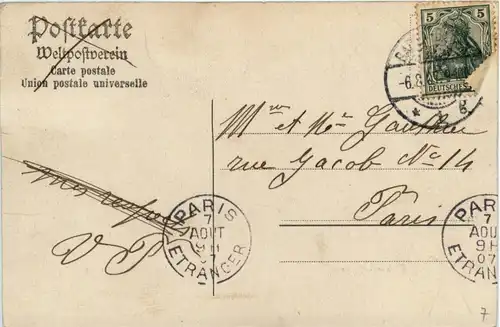 Postkarte
Weltpostverein
Carte postale
Union postale universelle
5 5
DEUTSCHES
-6.8
* g.
Mr et Me Gauthier
rue Jacob No 14
Paris
V P
PARIS
7
AOUT
9H
07
ETRANGER
PARI
7
AOU
9H
07
ETRAN
7